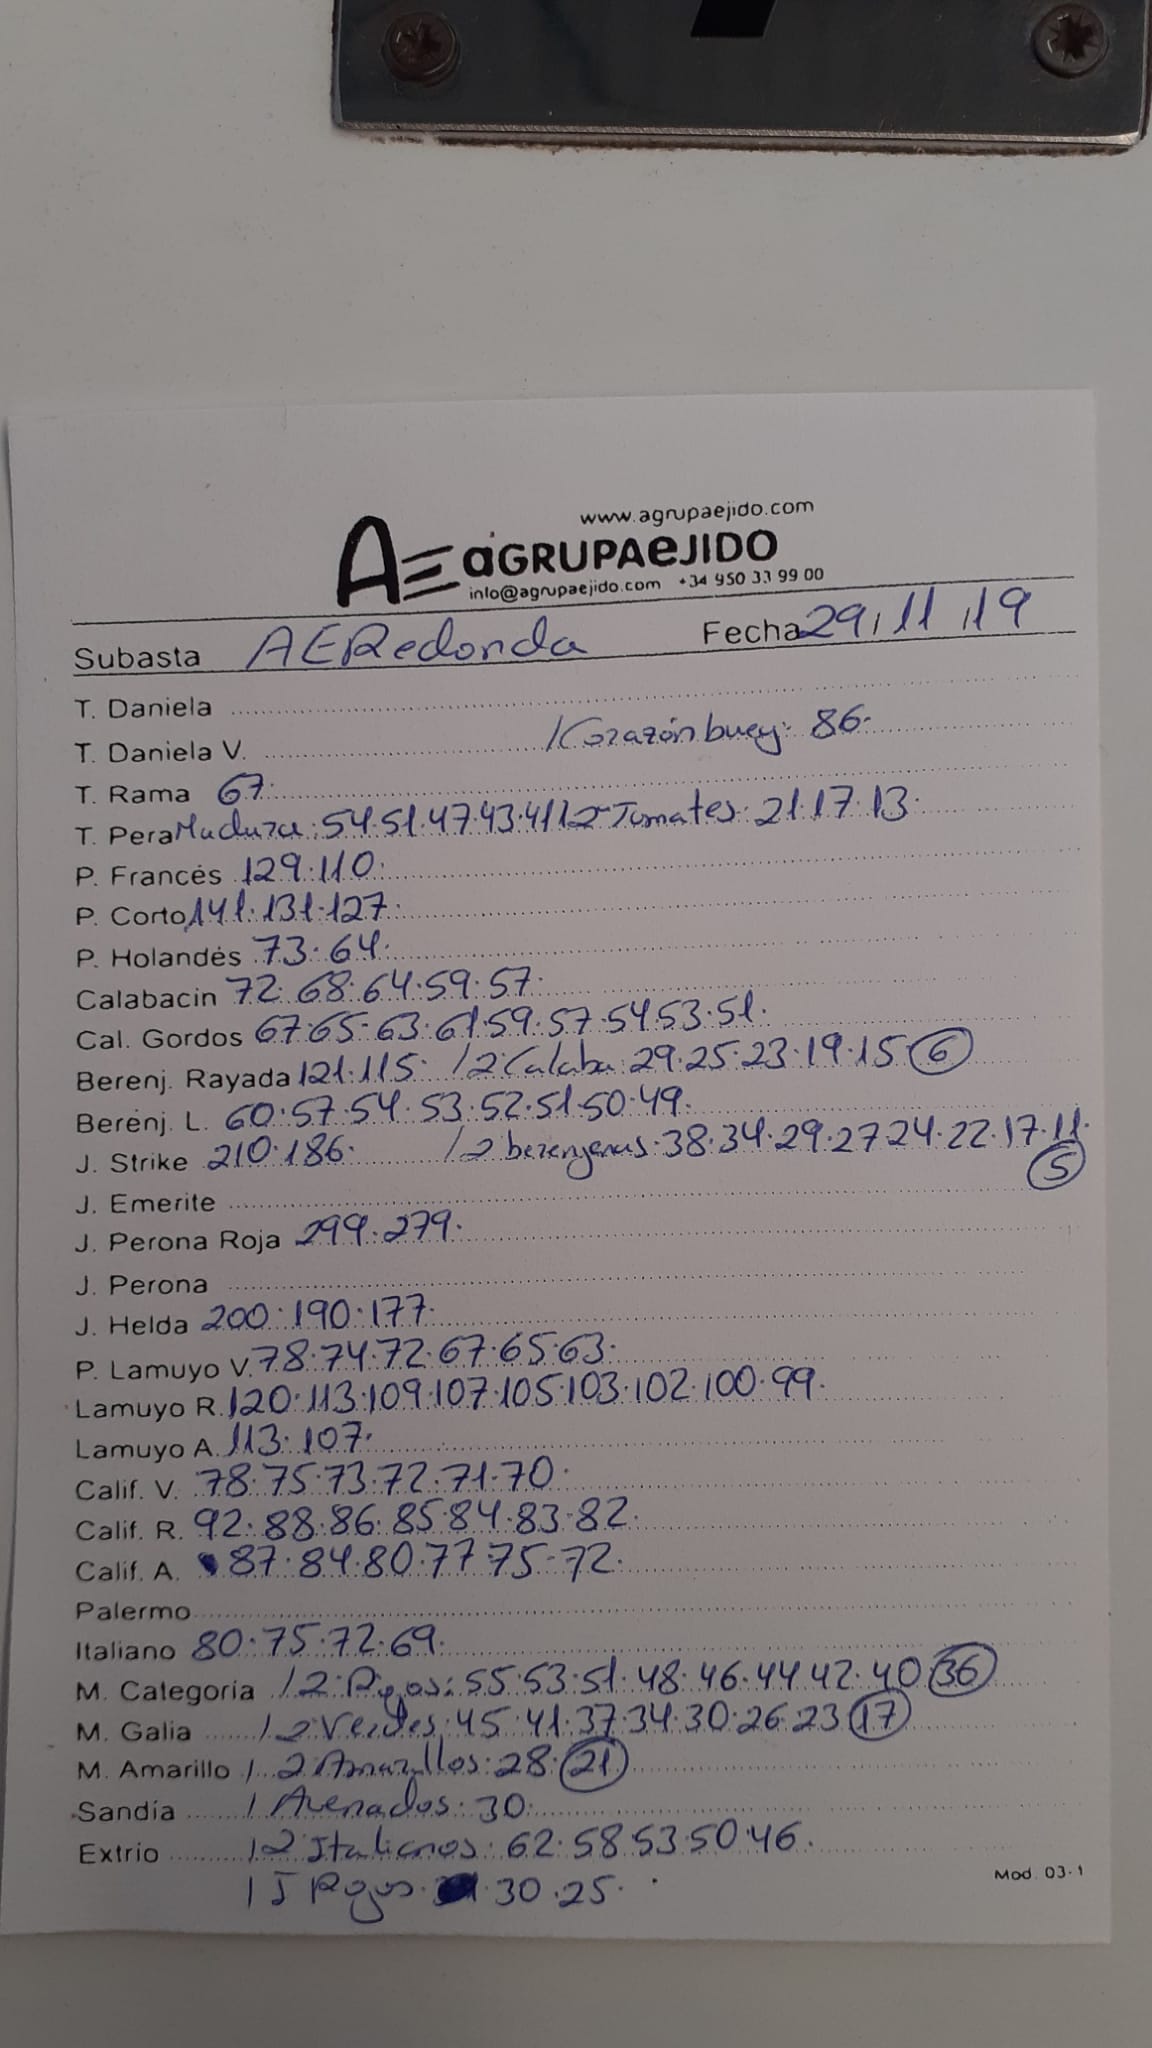 www.agrupaejido.com
AE aGRUPAeJIDO
info@agrupaejido.com +34 950 33 99 00
Subasta AERedonda Fecha 29/11/19
T. Daniela
T. Daniela V. / Corazón buey: 86.
T. Rama 67.
T. Pera Madura: 54.51.47.43.41 / 2ª Tomates: 21.17.13.
P. Francés 129.110.
P. Corto 141.131.127.
P. Holandés 73.64.
Calabacin 72.68.64.59.57.
Cal. Gordos 67.65.63.61.59.57.54.53.51.
Berenj. Rayada 121.115. / 2 Calaba: 29.25.23.19.15 (6)
Berenj. L. 60.57.54.53.52.51.50.49.
J. Strike 210.186. / 2 berenjenas: 38.34.29.27.24.22.17.11. (5)
J. Emerite
J. Perona Roja 299.279.
J. Perona
J. Helda 200.190.177.
P. Lamuyo V. 78.74.72.67.65.63.
Lamuyo R. 120.113.109.107.105.103.102.100.99.
Lamuyo A. 113.107.
Calif. V. 78.75.73.72.71.70.
Calif. R. 92.88.86.85.84.83.82.
Calif. A. 87.84.80.77.75.72.
Palermo
Italiano 80.75.72.69.
M. Categoria / 2 Rojos: 55.53.51.48.46.44.42.40 (36)
M. Galia / 2 Verdes: 45.41.37.34.30.26.23 (17)
M. Amarillo / 2 Amarillos: 28. (21)
Sandía / Avenados: 30.
Extrio / 2 Italianos: 62.58.53.50.46.
/ J Rojos: 30.25.
Mod. 03-1